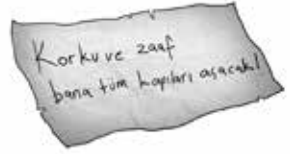 Korku ve zaaf
bana tüm kapıları açacak!